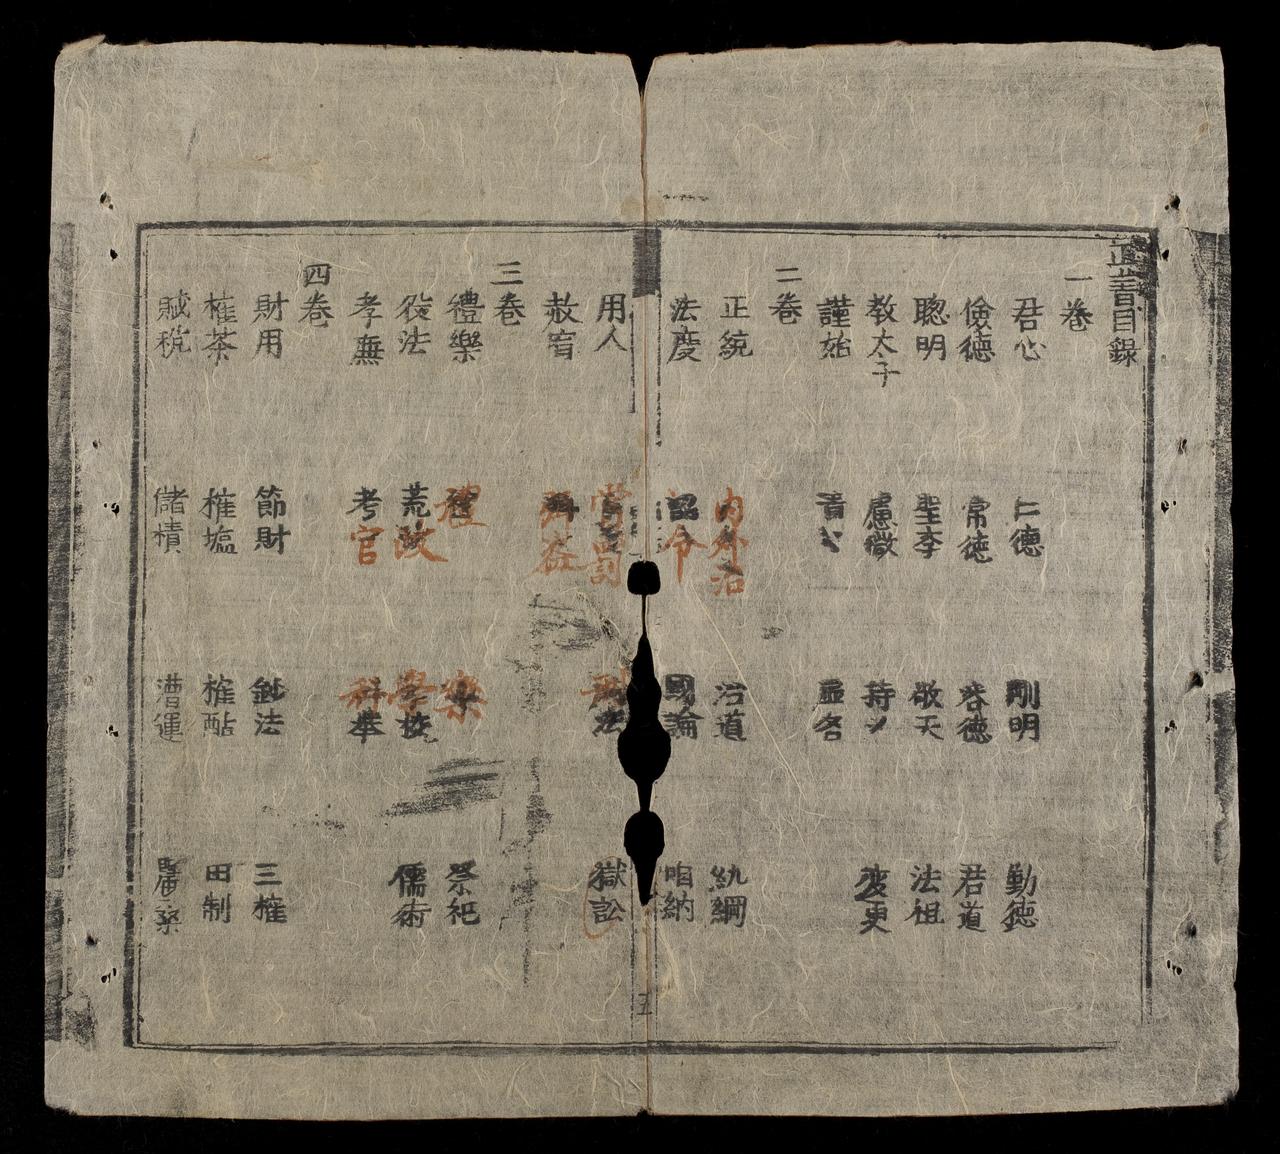 目錄
一卷
君心 仁德 剛明 勤德
儉德 常德 容德 君道
聰明 聖孝 敬天 法祖
教太子 慮微 持 變更
謹始 音 並名
二卷
正統 內外治 治道 紀綱
法度 詔令 國論 咱納
用人 賞罰 刑法 獄訟
赦宥 弭盜
三卷
禮樂 禮 樂 祭祀
役法 荒政 學校 儒術
孝廉 考官 科舉
四卷
財用 節財 鈔法 三榷
榷茶 榷塩 榷酤 田制
賦稅 儲積 漕運 農桑
五